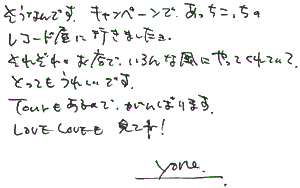 そうなんです。キャンペーンで、あっちこっちの
レコード屋に行きました。
それぞれのお店で、いろんな風にやってくれていて、
とってもうれしいです。
Tourもあるので、がんばります。
LOVE LOVEも見てネ!
yone.